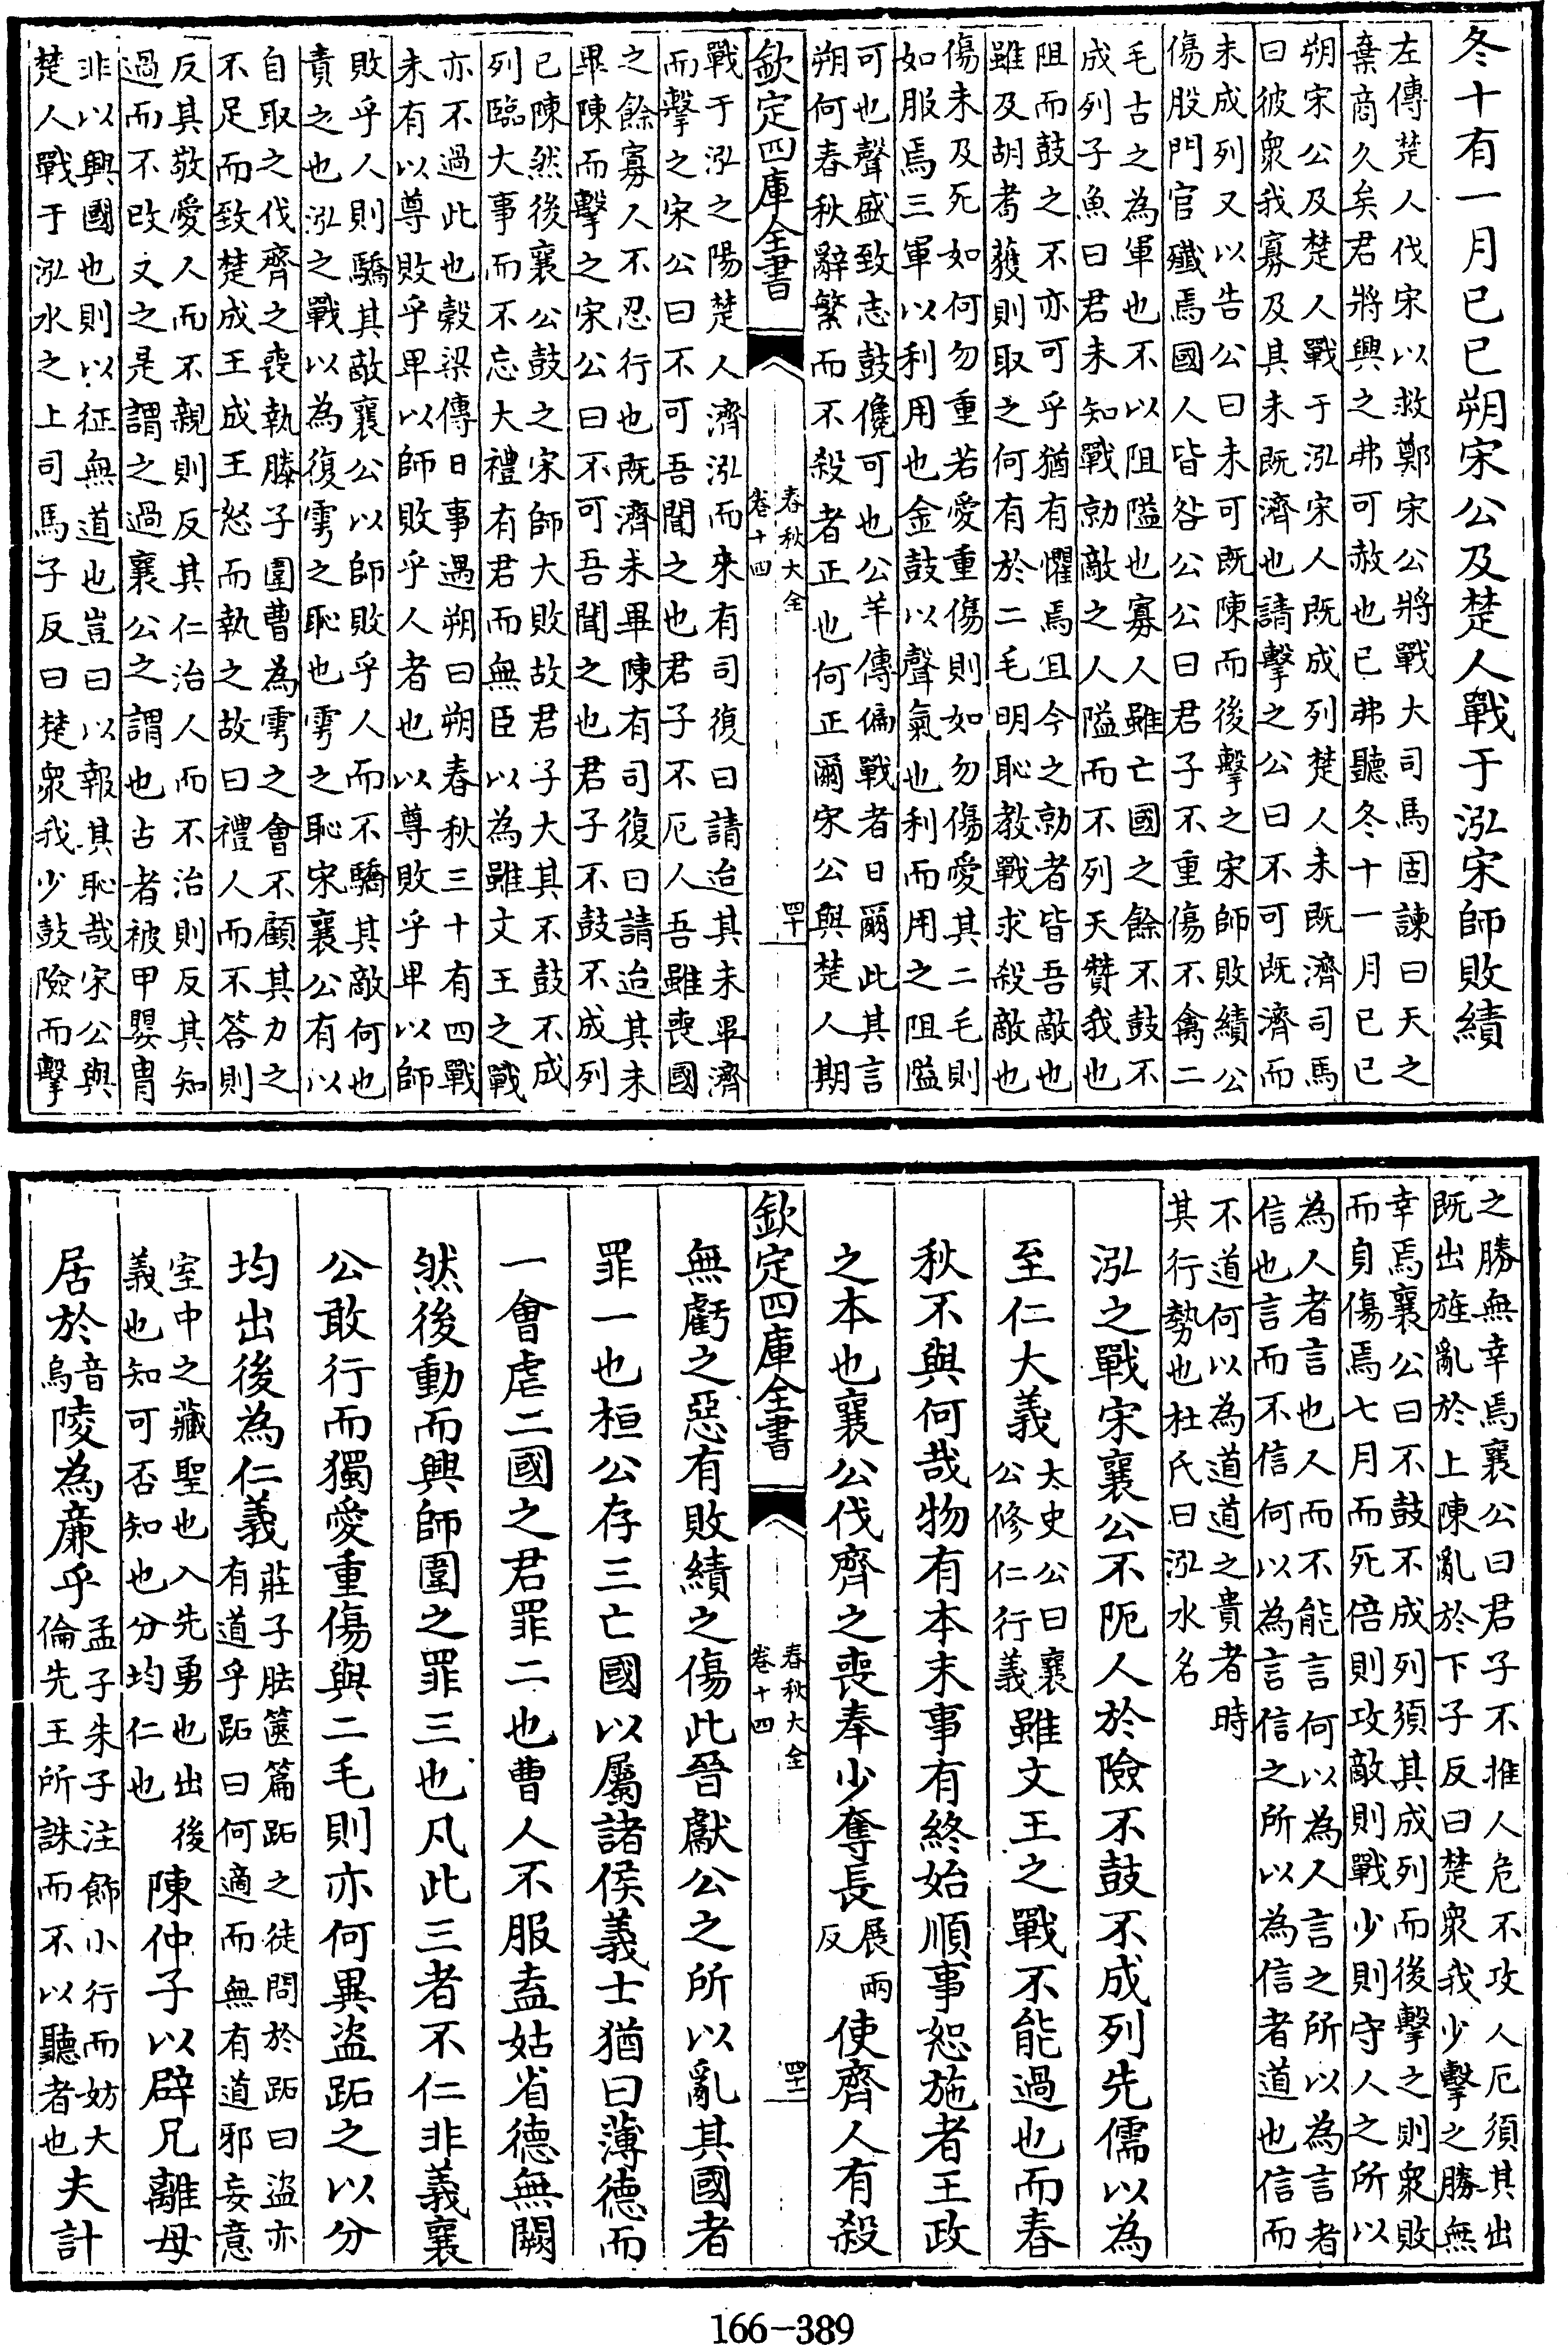 冬十有一月己巳朔宋公及楚人戰于泓宋師敗績
左傳楚人伐宋以救鄭宋公將戰大司馬固諫曰天之
棄商久矣君將興之弗可赦也已弗聽冬十一月己巳
朔宋公及楚人戰于泓宋人既成列楚人未既濟司馬
曰彼衆我寡及其未既濟也請擊之公曰不可既濟而
未成列又以告公曰未可既陳而後擊之宋師敗績公
傷股門官殲焉國人皆咎公公曰君子不重傷不禽二
毛古之為軍也不以阻隘也寡人雖亡國之餘不鼓不
成列子魚曰君未知戰勍敵之人隘而不列天贊我也
阻而鼓之不亦可乎猶有懼焉且今之勍者皆吾敵也
雖及胡耇獲則取之何有於二毛明恥教戰求殺敵也
傷未及死如何勿重若愛重傷則如勿傷愛其二毛則
如服焉三軍以利用也金鼓以聲氣也利而用之阻隘
可也聲盛致志鼓儳可也公羊傳偏戰者日爾此其言
朔何春秋辭繁而不殺者正也何正爾宋公與楚人期
欽定四庫全書
春秋大全
卷十四
四十
戰于泓之陽楚人濟泓而來有司復曰請迨其未畢濟
而擊之宋公曰不可吾聞之也君子不厄人吾雖喪國
之餘寡人不忍行也既濟未畢陳有司復曰請迨其未
畢陳而擊之宋公曰不可吾聞之也君子不鼓不成列
已陳然後襄公鼓之宋師大敗故君子大其不鼓不成
列臨大事而不忘大禮有君而無臣以為雖文王之戰
亦不過此也穀梁傳日事遇朔曰朔春秋三十有四戰
未有以尊敗乎卑以師敗乎人者也以尊敗乎卑以師
敗乎人則驕其敵襄公以師敗乎人而不驕其敵何也
責之也泓之戰以為復雩之恥也雩之恥宋襄公有以
自取之伐齊之喪執滕子圍曹為雩之會不顧其力之
不足而致楚成王成王怒而執之故曰禮人而不答則
反其敬愛人而不親則反其仁治人而不治則反其知
過而不改又之是謂之過襄公之謂也古者被甲嬰胄
非以興國也則以征無道也豈曰以報其恥哉宋公與
楚人戰于泓水之上司馬子反曰楚衆我少鼓險而擊
之勝無幸焉襄公曰君子不推人危不攻人厄須其出
既出旌亂於上陳亂於下子反曰楚衆我少擊之勝無
幸焉襄公曰不鼓不成列須其成列而後擊之則衆敗
而身傷焉七月而死倍則攻敵則戰少則守人之所以
為人者言也人而不能言何以為人言之所以為言者
信也言而不信何以為言信之所以為信者道也信而
不道何以為道道之貴者時
其行勢也杜氏曰泓水名
泓之戰宋襄公不阨人於險不鼓不成列先儒以為
至仁大義太史公曰襄公修仁行義雖文王之戰不能過也而春
秋不與何哉物有本末事有終始順事恕施者王政
之本也襄公伐齊之喪奉少奪長展兩反使齊人有殺
欽定四庫全書
春秋大全
卷十四
四十一
無虧之惡有敗績之傷此晉獻公之所以亂其國者
罪一也桓公存三亡國以屬諸侯義士猶曰薄德而
一會虐二國之君罪二也曹人不服盍姑省德無闕
然後動而興師圍之罪三也凡此三者不仁非義襄
公敢行而獨愛重傷與二毛則亦何異盜跖之以分
均出後為仁義莊子胠篋篇跖之徒問於跖曰盜亦有道乎跖曰何適而無有道邪妄意
室中之藏聖也入先勇也出後義也知可否知也分均仁也陳仲子以辟兄離母
居於音烏陵為廉乎孟子朱子注飾小行而妨大倫先王所誅而不以聽者也夫計
166-389